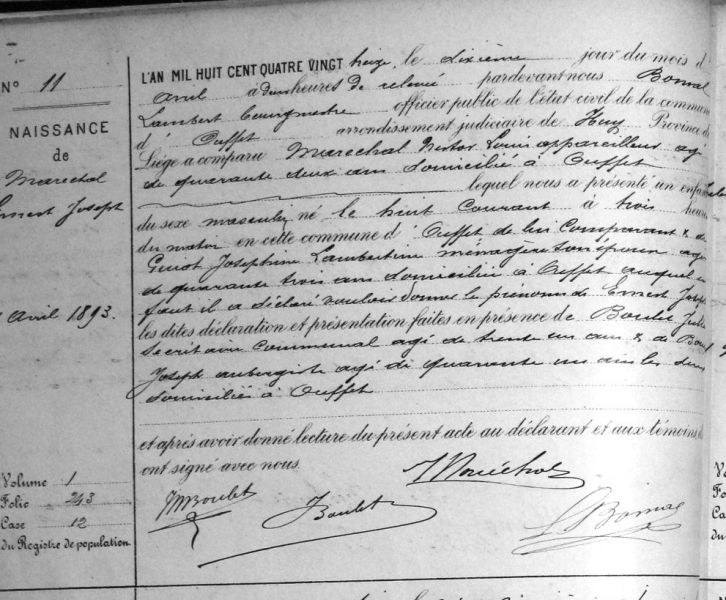 N° 11
NAISSANCE
de
Marechal
Ernest Joseph
Avril 1893.
Volume 1
Folio 243
Case 12
du Registre de population.
L'AN MIL HUIT CENT QUATRE VINGT treize, le dixième jour du mois d
avril à deux heures de relevé pardevant nous Bonnal
Lambert bourgmestre officier public de l'état civil de la commune
d' Ouffet arrondissement judiciaire de Huy, Province de
Liège a comparu Marechal Nestor Louis appareilleur agé
de quarante deux ans domicilié à Ouffet
lequel nous a présenté un enfant
du sexe masculin né le huit courant à trois heures
du matin en cette commune d' Ouffet de lui comparant & de
Guiot Josephine Lambertine ménagère son épouse agée
de quarante trois ans domiciliée à Ouffet auquel en
faut il a déclaré vouloir donner le prénoms de Ernest Joseph
les dites déclaration et présentation faites en présence de Boulet Jules
secrétaire communal agé de trente un ans & de
Joseph aubergiste agé de quarante un ans les deux
domiciliés à Ouffet
et après avoir donné lecture du présent acte au déclarant et aux témoins
ont signé avec nous.
N Maréchal
JBoulet
L Bonnal